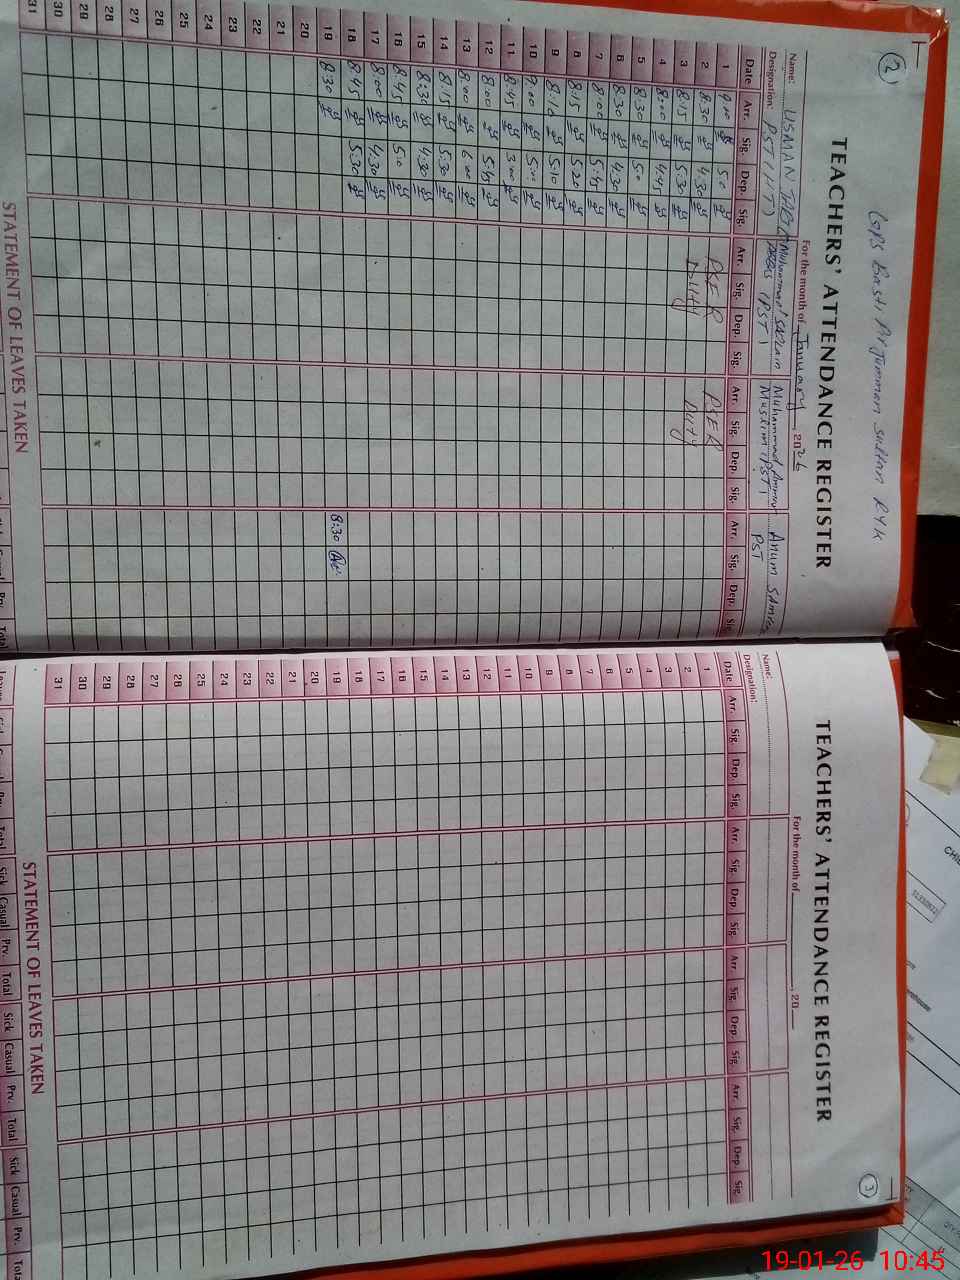 2
GPS Basti Pir Jumman Sultan RYK
TEACHERS' ATTENDANCE REGISTER
For the month of January, 2026
Name: USMAN Muhammad Muhammad Anum
Designation: PST (HT) (PST) Muslim (PST) PST
Date Arr. Sig. Dep. Sig. Arr. Sig. Dep. Sig. Arr. Sig. Dep. Sig. Arr. Sig. Dep. Sig.
1 9:00 5:0 PSER PSER
2 8:30 4:30 Duty Duty
3 8:15 5:30
4 8:00 4:45
5 8:30 5:0
6 8:30 4:30
7 8:00 5:45
8 8:15 5:20
9 8:10 5:10
10 9:00 5:00
11 8:45 3:00
12 8:00 5:45
13 8:00 6:00
14 8:15 5:30
15 8:30 4:30
16 8:45 5:0
17 8:00 4:30
18 8:45 5:30
19 8:30 8:30
20
21
22
23
24
25
26
27
28
29
30
31
STATEMENT OF LEAVES TAKEN
3
TEACHERS' ATTENDANCE REGISTER
For the month of , 20
Name:
Designation:
Date Arr. Sig. Dep. Sig. Arr. Sig. Dep. Sig. Arr. Sig. Dep. Sig. Arr. Sig. Dep. Sig.
1
2
3
4
5
6
7
8
9
10
11
12
13
14
15
16
17
18
19
20
21
22
23
24
25
26
27
28
29
30
31
STATEMENT OF LEAVES TAKEN
Sick Casual Prv. Total Sick Casual Prv. Total Sick Casual Prv. Total Sick Casual Prv. Total
19-01-26 10:45